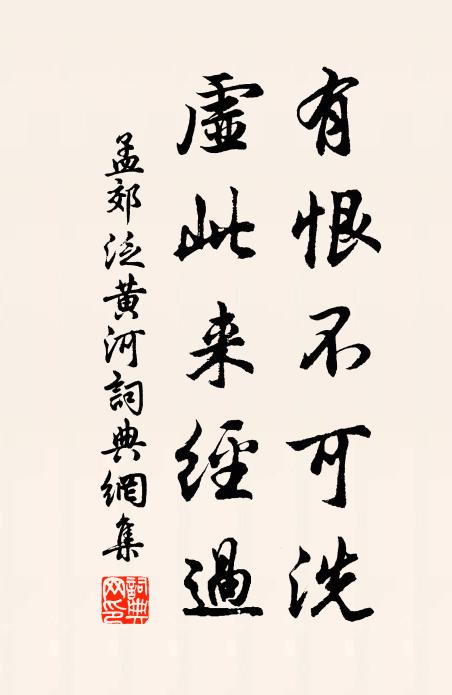 有恨不可洗
虛此来經過
孟郊泛黄河詞典網集
詞典網印